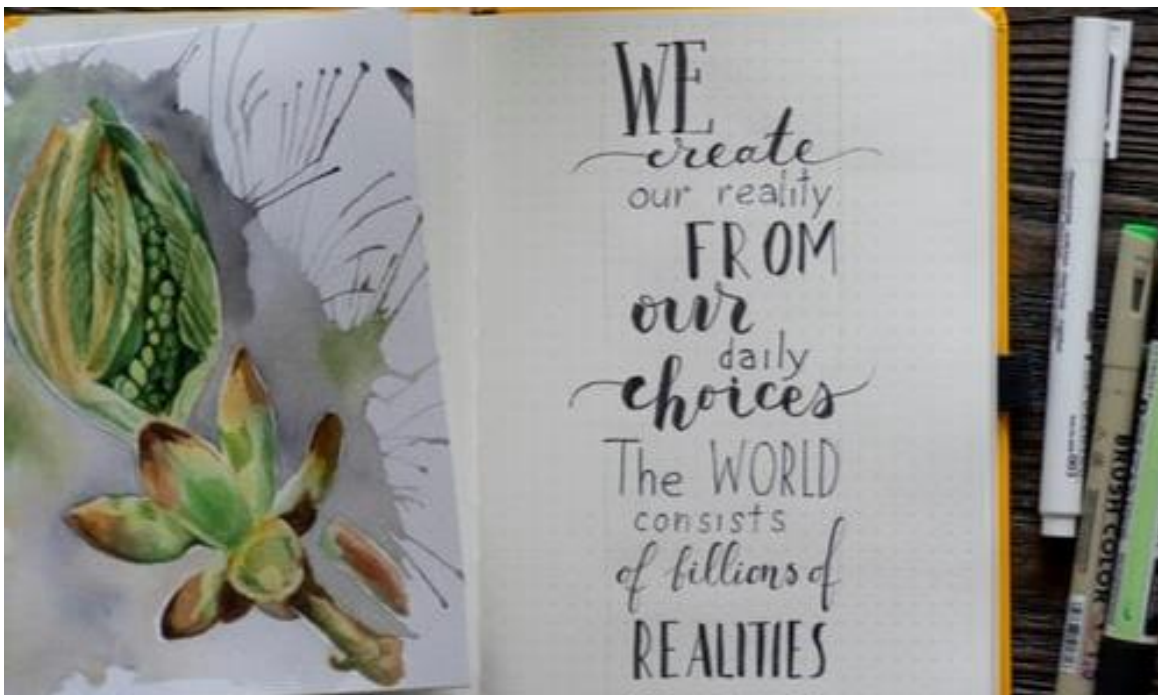 WE
create
our reality
FROM
our
daily
choices
The WORLD
consists
of billions of
REALITIES
BRUSH COLOR